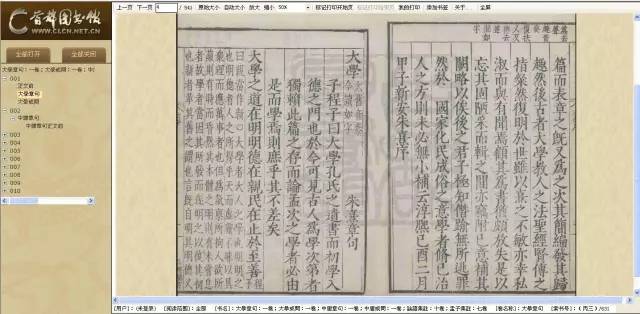 首都图书馆
WWW.CLCN.NET.CN
上一页 下一页 / 541 原始大小 自动大小 放大 缩小 50% 标记打印开始页 标记打印结束页 我的打印 添加书签 关于... 全屏
全部打开 全部关闭
大學章句：一卷；大學或問：一卷；中庸
001
正文前
大學章句
大學或問
002
中庸章句
中庸章句正文前
003
004
005
006
007
008
009
010
篇而表章之既又爲之次其簡編發其歸
趣然後古者大學教人之法聖經賢傳之
指粲然復明於世雖以熹之不敏亦幸私
淑而與有聞焉顧其爲書猶頗放失是以
忘其固陋采而輯之間亦竊附己意補其
闕略以俟後之君子極知僭踰無所逃罪
然於國家化民成俗之意學者修己治
人之方則未必無小補云淳熙己酉二月
甲子新安朱熹序
大學
朱熹章句
子程子曰大學孔氏之遺書而初學入
德之門也於今可見古人爲學次第者
獨賴此篇之存而論孟次之學者必由
是而學焉則庶乎其不差矣
大學之道在明明德在親民在止於至善
[用户]：(未登录) [阅读范围]：全部 [书名]：大學章句：一卷；大學或問：一卷；中庸章句：一卷；中庸或問：一卷；論語集註：十卷；孟子集註：七卷 [卷名称]：大學章句 [索书号]：(丙三)/631